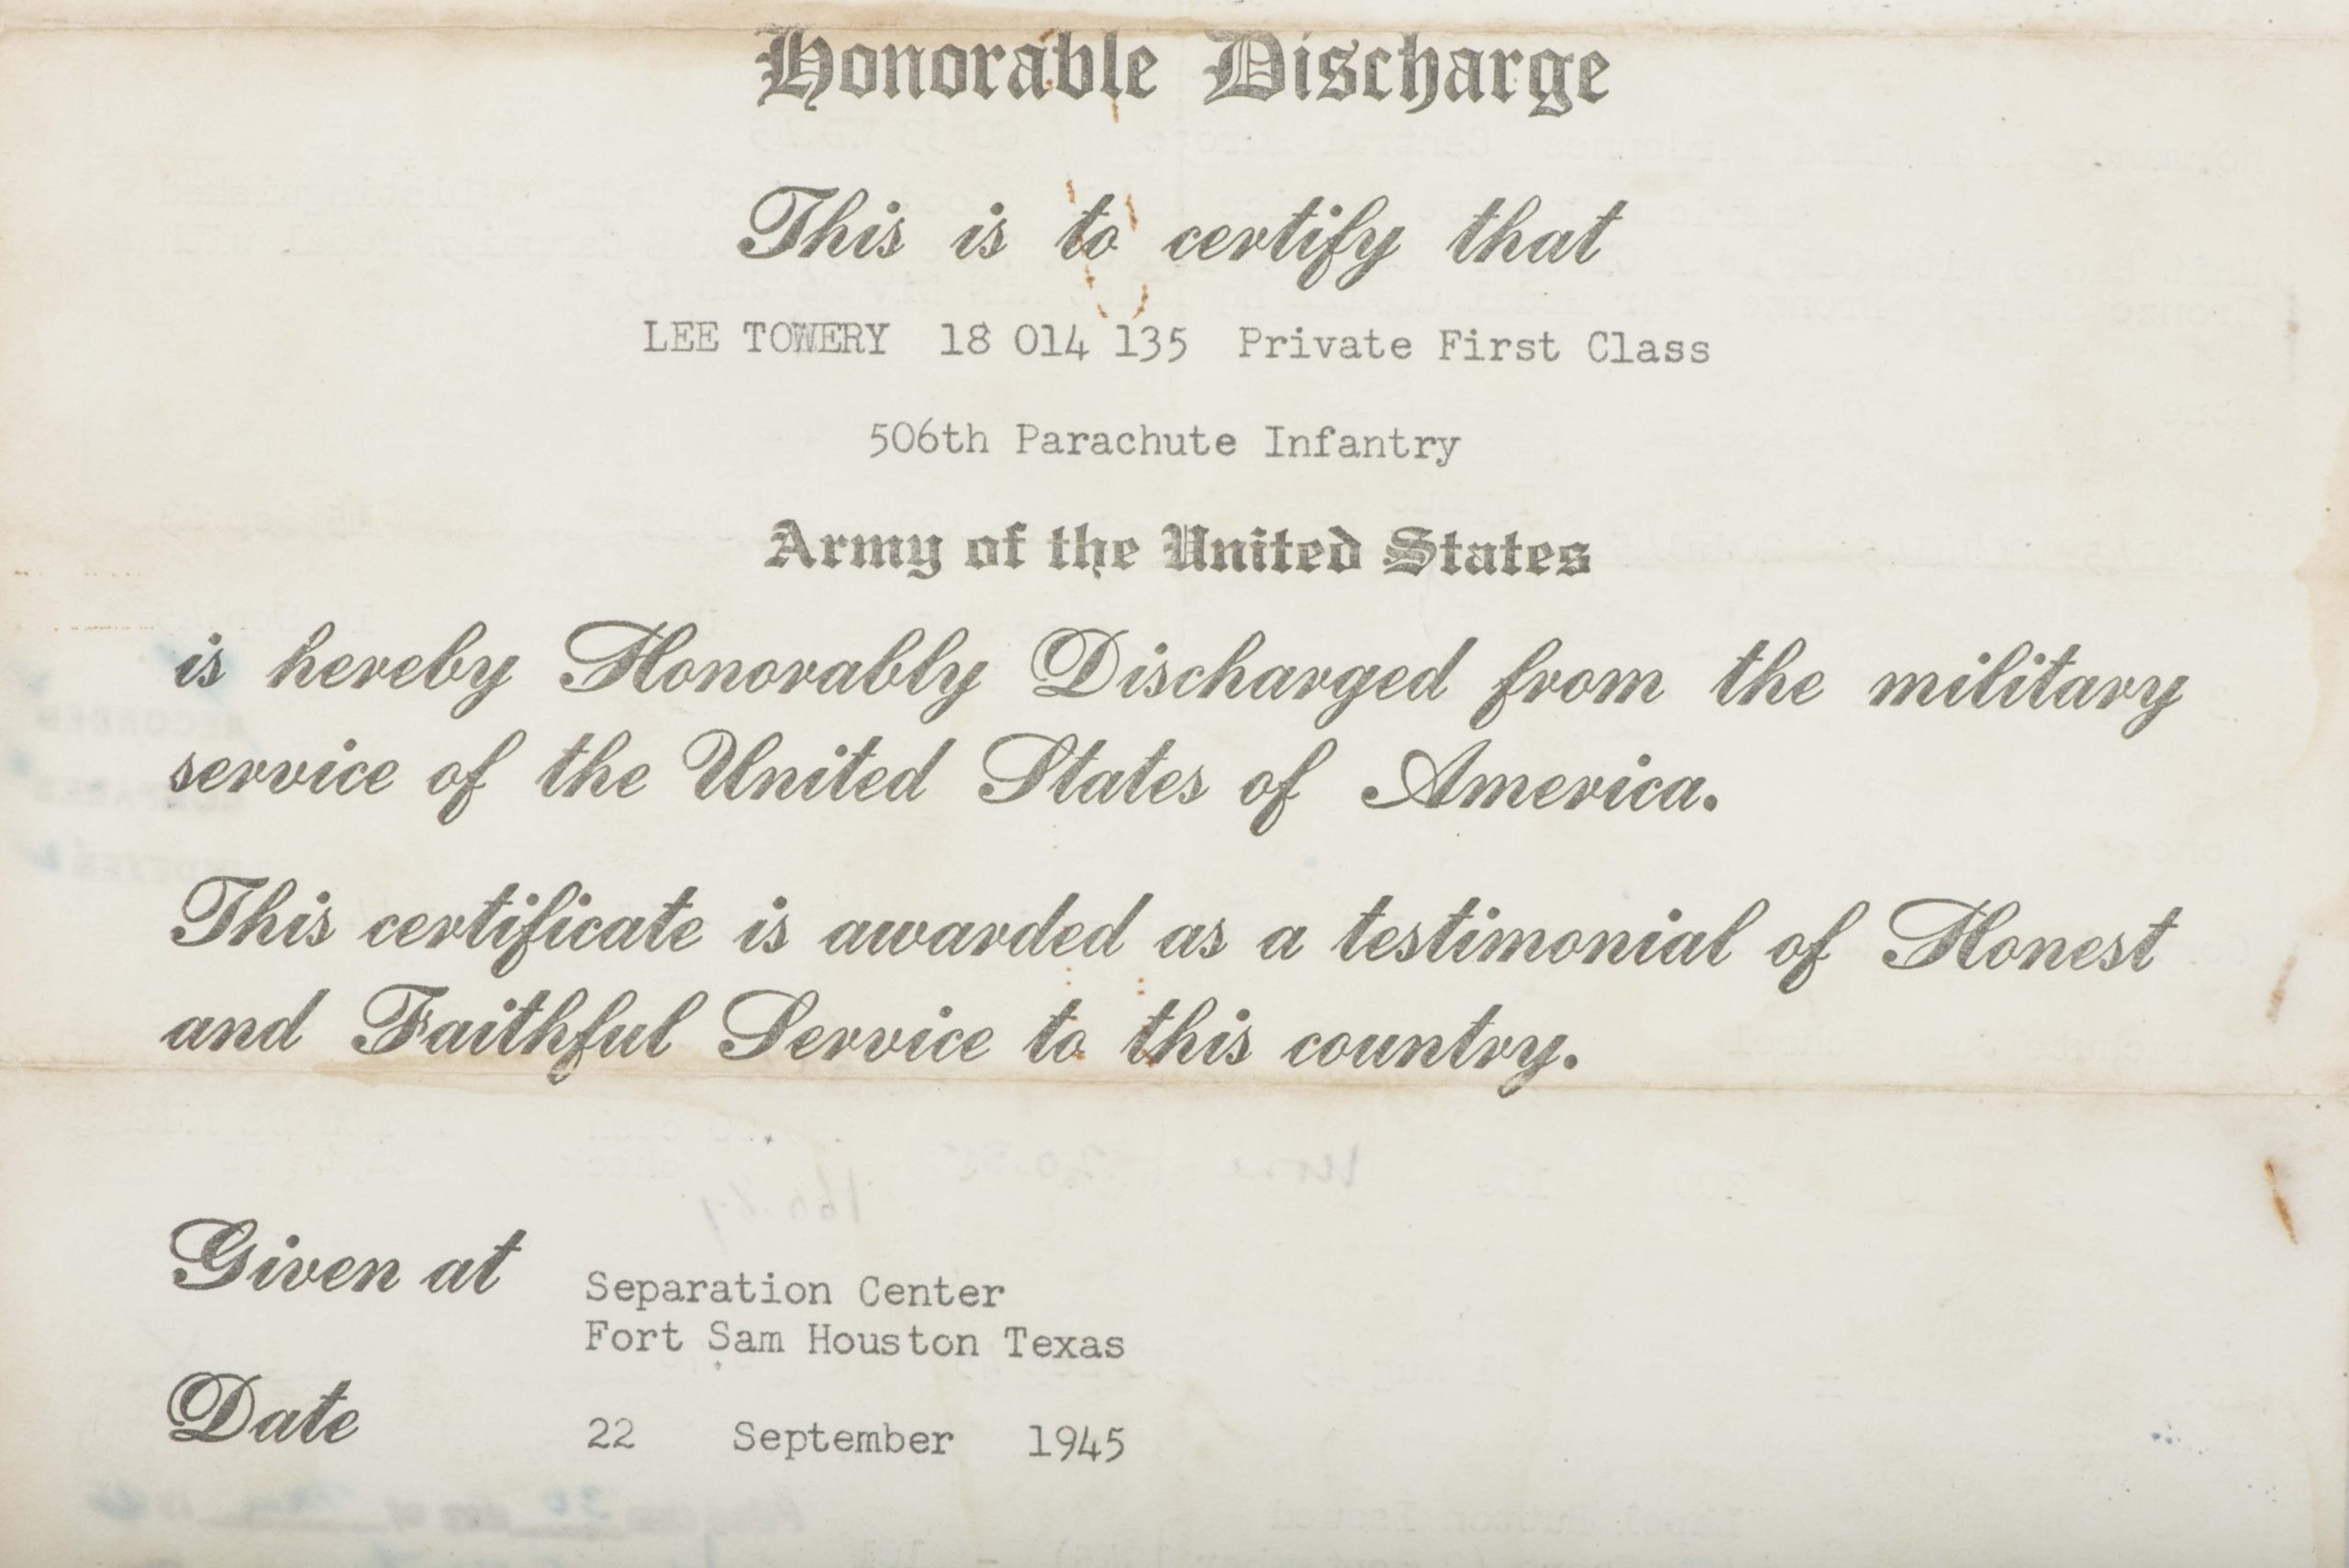 Honorable Discharge
This is to certify that
LEE TOWERY 18 014 135 Private First Class
506th Parachute Infantry
Army of the United States
is hereby Honorably Discharged from the military
service of the United States of America.
This certificate is awarded as a testimonial of Honest
and Faithful Service to this country.
Given at Separation Center
Fort Sam Houston Texas
Date 22 September 1945